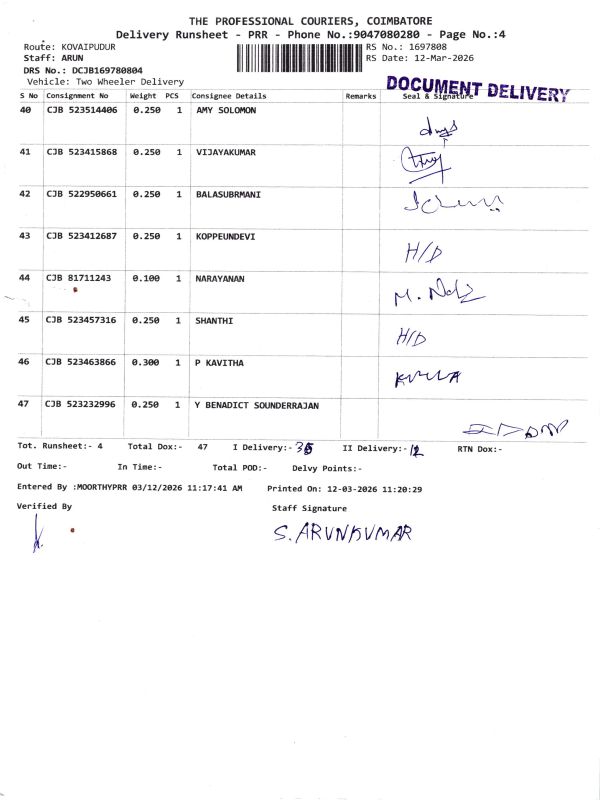 THE PROFESSIONAL COURIERS, COIMBATORE
Delivery Runsheet - PRR - Phone No.:9047080280 - Page No.:4
Route: KOVAIPUDUR
RS No.: 1697808
Staff: ARUN
RS Date: 12-Mar-2026
DRS No.: DCJB169780804
Vehicle: Two Wheeler Delivery
DOCUMENT DELIVERY
S No Consignment No Weight PCS Consignee Details Remarks Seal & Signature
40 CJB 523514406 0.250 1 AMY SOLOMON
41 CJB 523415868 0.250 1 VIJAYAKUMAR
42 CJB 522950661 0.250 1 BALASUBRMANI
43 CJB 523412687 0.250 1 KOPPEUNDEVI H/D
44 CJB 81711243 0.100 1 NARAYANAN
45 CJB 523457316 0.250 1 SHANTHI H/D
46 CJB 523463866 0.300 1 P KAVITHA
47 CJB 523232996 0.250 1 Y BENADICT SOUNDERRAJAN
Tot. Runsheet:- 4 Total Dox:- 47 I Delivery:- 35 II Delivery:- 12 RTN Dox:-
Out Time:- In Time:- Total POD:- Delvy Points:-
Entered By :MOORTHYPRR 03/12/2026 11:17:41 AM Printed On: 12-03-2026 11:20:29
Verified By Staff Signature
S. ARUNKUMAR